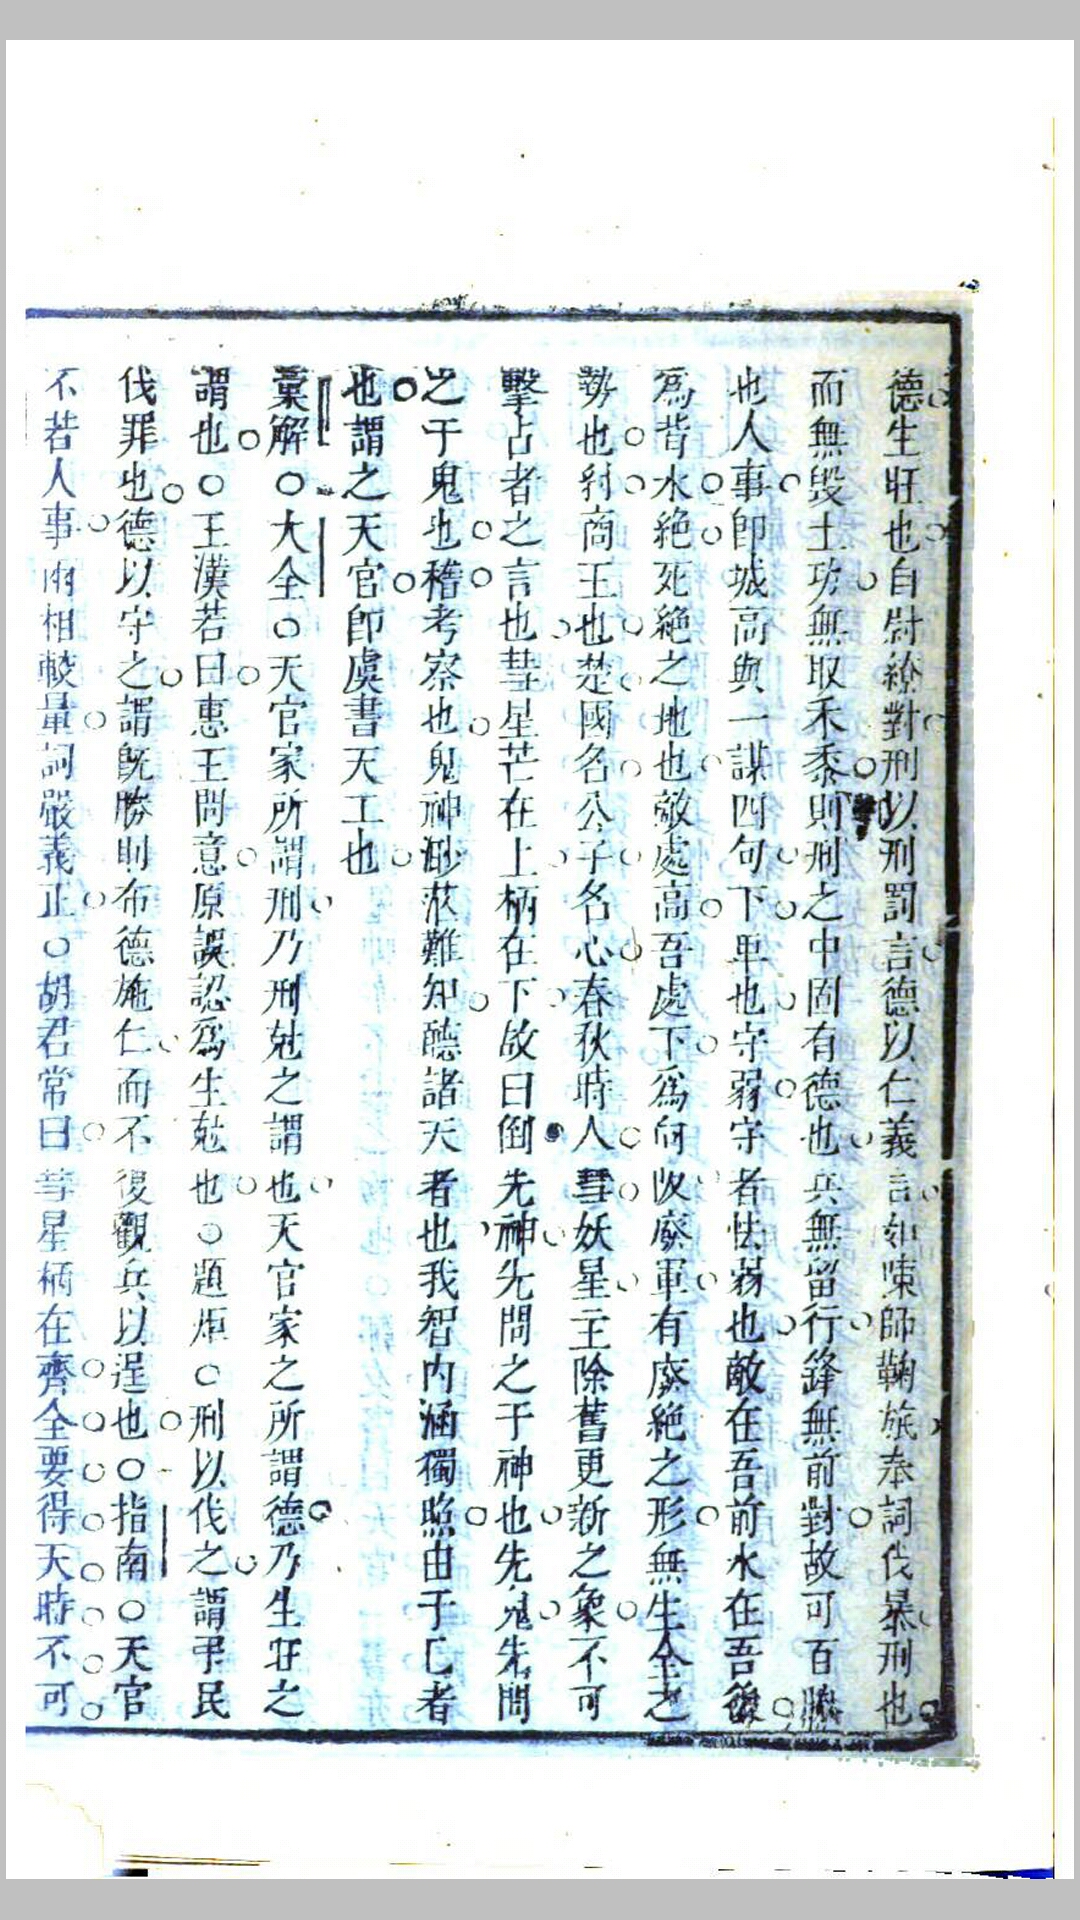 德生旺也自尉繚對刑以刑罰言德以仁義言如陳師鞠旅奉詞伐暴刑也
而無毀土功無取禾黍則刑之中固有德也兵無留行鋒無前對故可百勝
也人事即城高與一謀四句下单也守弱守者怯弱也敵在吾前水在吾後
爲背水絶死絶之地也敵處高吾處下爲向收廢軍有廢絶之形無生全之
勢也剡商王也楚國名公子名心春秋時人彗妖星主除舊更新之象不可
擊占者之言也彗星芒在上柄在下故曰倒先神先問之于神也先鬼先問
之于鬼也稽考察也鬼神渺茫難知聽諸天者也我智内涵獨照由于己者
也謂之天官即虞書天工也
彙解○大全○天官家所謂刑乃刑尅之謂也天官家之所謂德乃生旺之
謂也○王漢若曰惠王問意原誤認爲生尅也○題炬○刑以伐之謂弔民
伐罪也德以守之謂旣勝則布德施仁而不復觀兵以逞也○指南○天官
不若人事兩相較量詞嚴義正○胡君常曰彗星柄在齊全要得天時不可